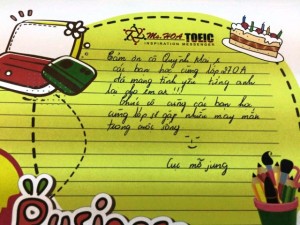 Ms. HOA TOEIC
INSPIRATION MESSENGER
Cảm ơn cô Quỳnh
các bạn học cùng lớp
đã mang tình yêu tiếng anh
lại cho em ạ !!!
Chúc cô cùng các bạn học
cùng lớp sẽ gặp nhiều may mắn
trong cuộc sống
Cục mỡ